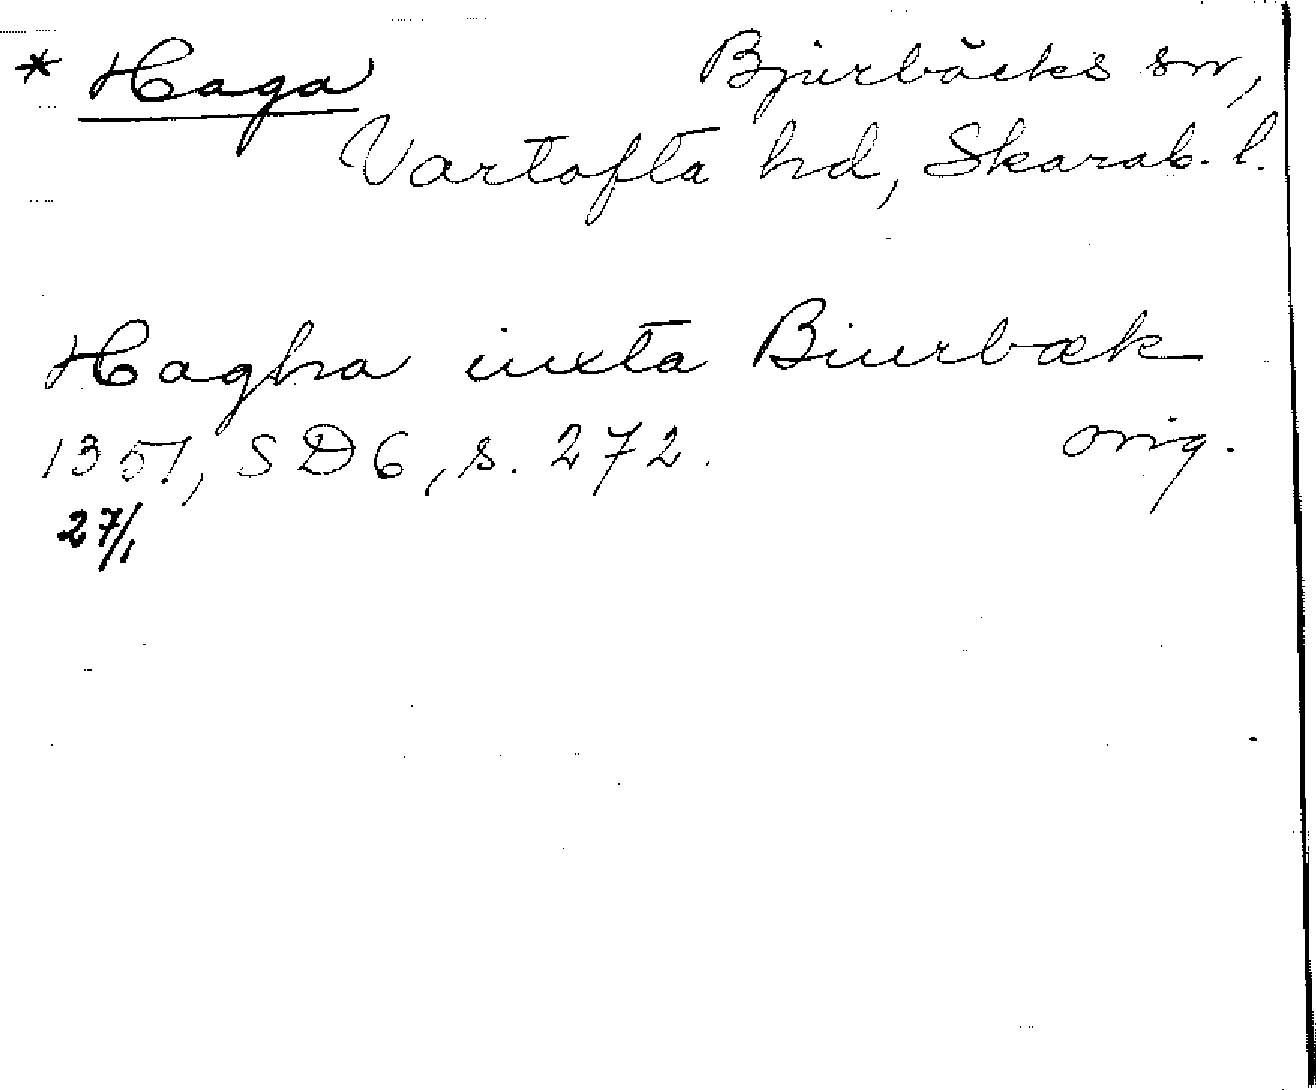 * Haga Bjurbäcks sn,
Vartofta hd, Skarab. l.
Hagha iuxta Biurbæk
1351, SD6, s. 272. orig.
27/1